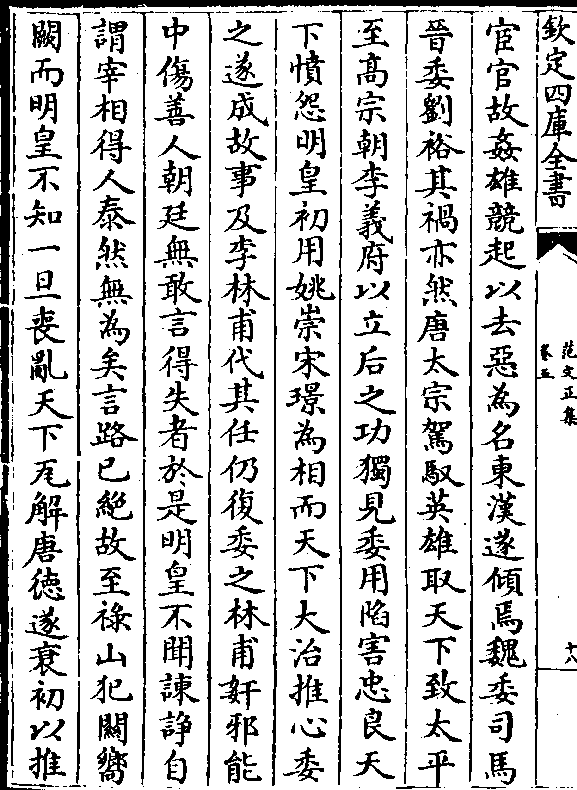 欽定四庫全書
范文正集
卷五
十八
宦官故姦雄競起以去惡為名東漢遂傾焉魏委司馬
晉委劉裕其禍亦然唐太宗駕馭英雄取天下致太平
至髙宗朝李義府以立后之功獨見委用陷害忠良天
下憤怨明皇初用姚崇宋璟為相而天下大治推心委
之遂成故事及李林甫代其任仍復委之林甫奸邪能
中傷善人朝廷無敢言得失者於是明皇不聞諫諍自
謂宰相得人泰然無為矣言路已絶故至祿山犯闕嚮
闕而明皇不知一旦喪亂天下瓦解唐徳遂衰初以推